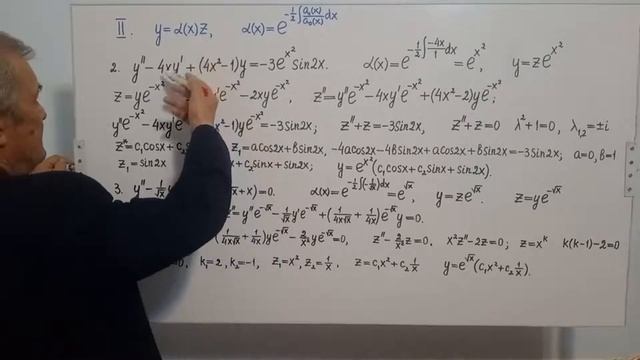 II. y=α(x)z, α(x)=e^{-\frac{1}{2}∫\frac{a_1(x)}{a_0(x)}dx}
2. y''-4xy'+(4x²-1)y=-3e^{x²}sin2x. α(x)=e^{-\frac{1}{2}∫\frac{-4x}{1}dx}=e^{x²}, y=ze^{x²}
z=ye^{-x²} 'e^{-x²}-2xye^{-x²}, z''=y''e^{-x²}-4xy'e^{-x²}+(4x²-2)ye^{-x²};
y''e^{-x²}-4xy'e x²-1)ye^{-x²}=-3sin2x; z''+z=-3sin2x, z''+z=0 λ²+1=0, λ_{1,2}=±i
z=c₁cosx+c₂ z₁=acos2x+bsin2x, -4acos2x-4bsin2x+acos2x+bsin2x=-3sin2x; a=0, b=1
z₁=sin2x x+c₂sinx+sin2x; y=e^{x²}(c₁cosx+c₂sinx+sin2x).
3. y''-\frac{1}{√x}y √x+x)=0. α(x)=e^{-\frac{1}{2}∫(-\frac{1}{√x})dx}=e^{√x}, y=ze^{√x}, z=ye^{-√x}
z''=y''e^{-√x}-\frac{1}{√x}y'e^{-√x}+(\frac{1}{4x√x}+\frac{1}{4x})e^{-√x}y=0.
(\frac{1}{4x√x}+\frac{1}{4x})ye^{-√x}-\frac{2}{x²}ye^{-√x}=0, z''-\frac{2}{x²}z=0, x²z''-2z=0; z=x^k k(k-1)-2=0
=0, k₁=2, k₂=-1, z₁=x², z₂=\frac{1}{x}, z=c₁x²+c₂\frac{1}{x} y=e^{√x}(c₁x²+c₂\frac{1}{x}).